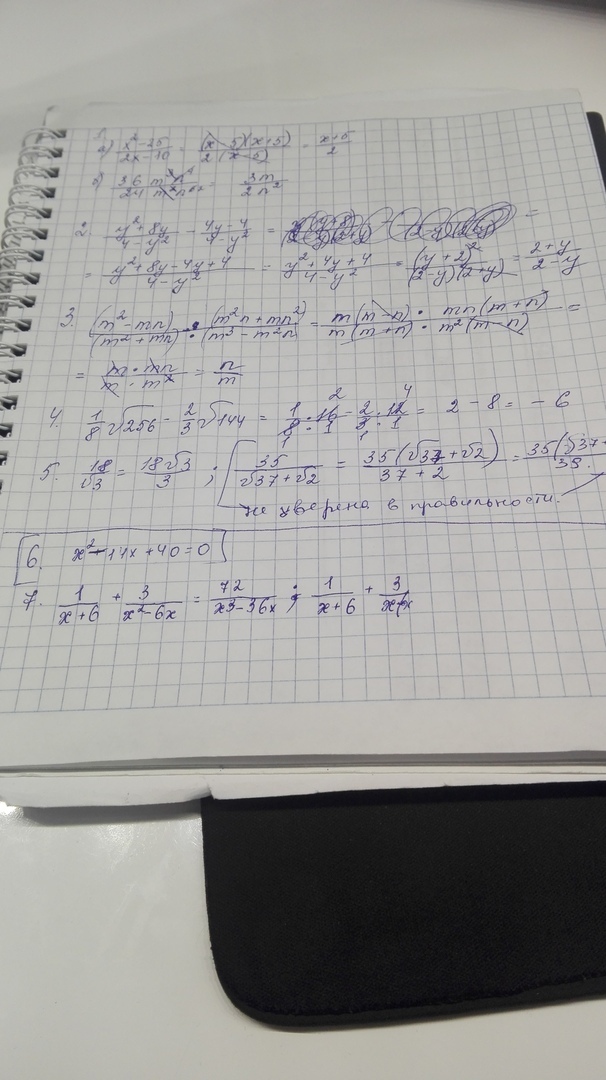 1.
а) x²-25 / 2x-10 = (x-5)(x+5) / 2(x-5) = x+5 / 2
36 m³n⁴ / 24 = 3m / 2n²
2. y²+8y / 4-y² - 4y-4 / 4-y² = =
= y²+8y-4y+4 / 4-y² = y²+4y+4 / 4-y² = (y+2)² / (2-y)(2+y) = 2+y / 2-y
3. (m²-mn) / (m²+mn) · (m²n+mn²) / (m³-m²n) = m(m-n) / m(m+n) · mn(m+n) / m²(m-n) =
= m·mn / m·m² = n / m
4. 1/8 √256 - 2/3 √144 = 1/8 · 16/1 - 2/3 · 12/1 = 2 - 8 = - 6
5. 18/√3 = 18√3 / 3 ; 35 / √37+√2 = 35(√37+√2) / 37+2 = 35(√37+ / 39.
не уверена в правильности.
6. x²-14x+40=0
7. 1 / x+6 + 3 / x²-6x = 72 / x³-36x ; 1 / x+6 + 3